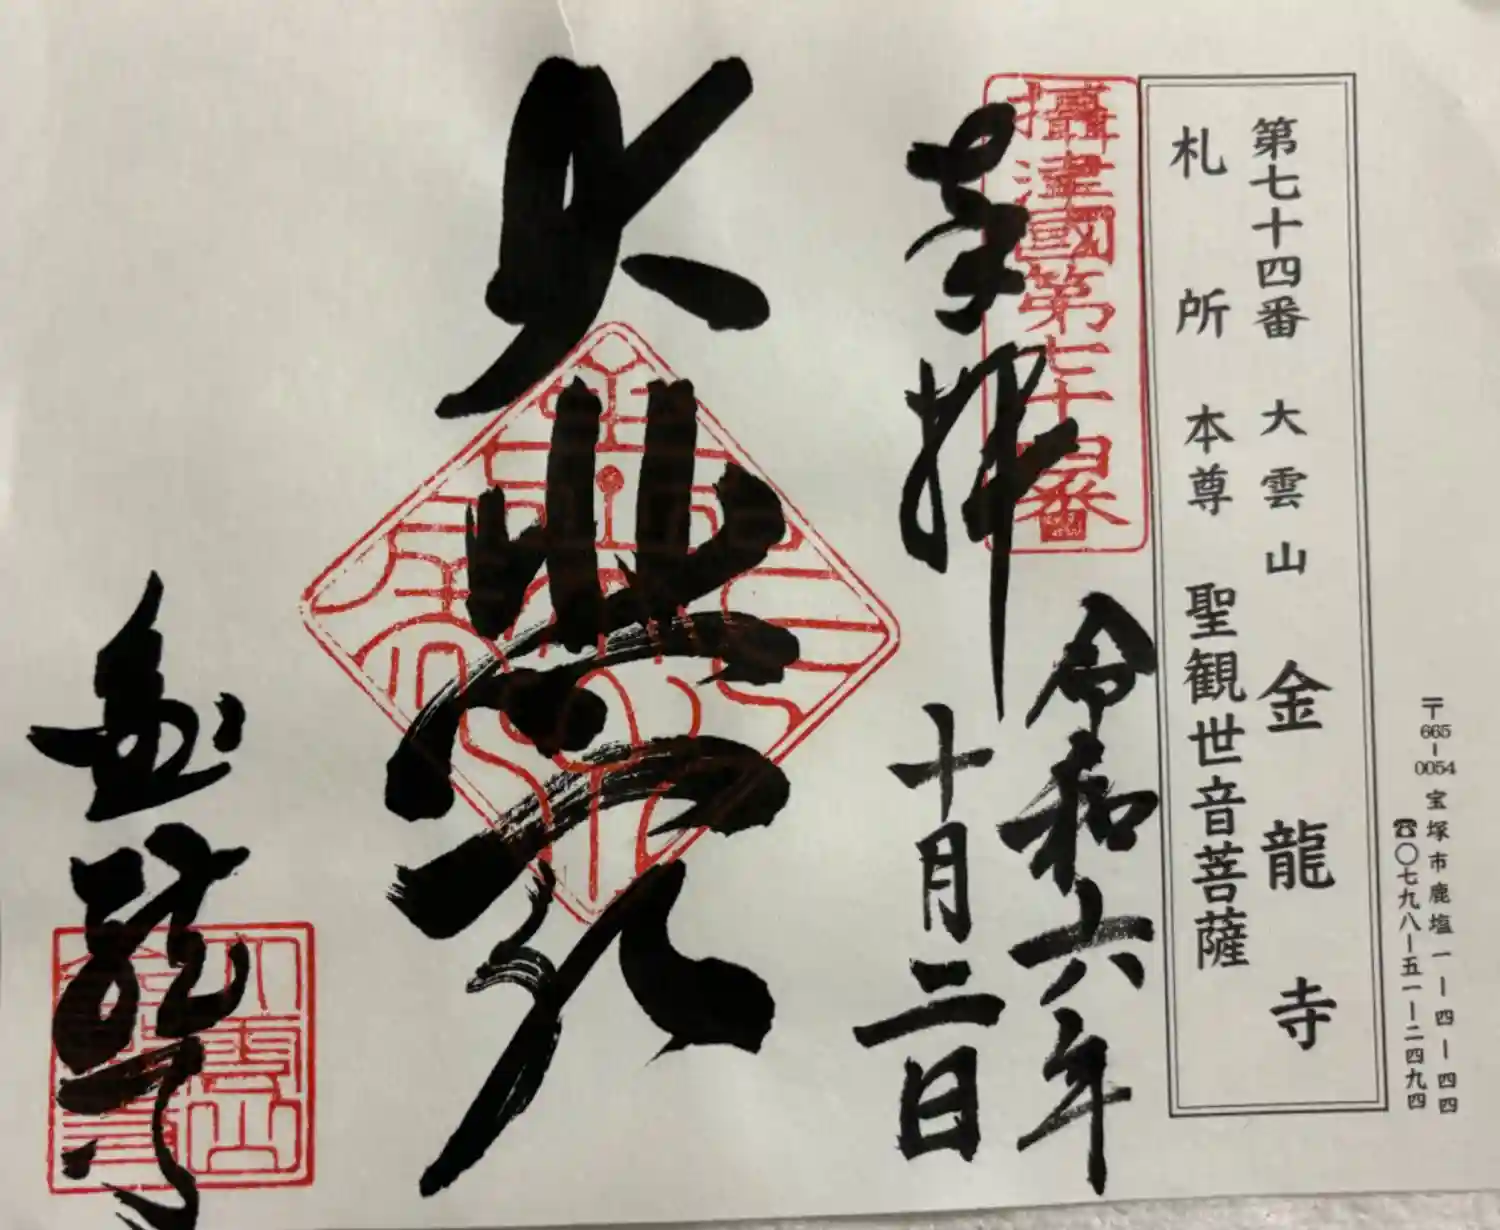 〒665-0054 宝塚市鹿塩一ー四ー四四
☎〇七九八ー五一ー二四九四
第七十四番 大雲山 金龍寺
札所 本尊 聖観世音菩薩
攝津國第七十四番
奉拝
令和六年
十月二日
金龍寺
大雲山